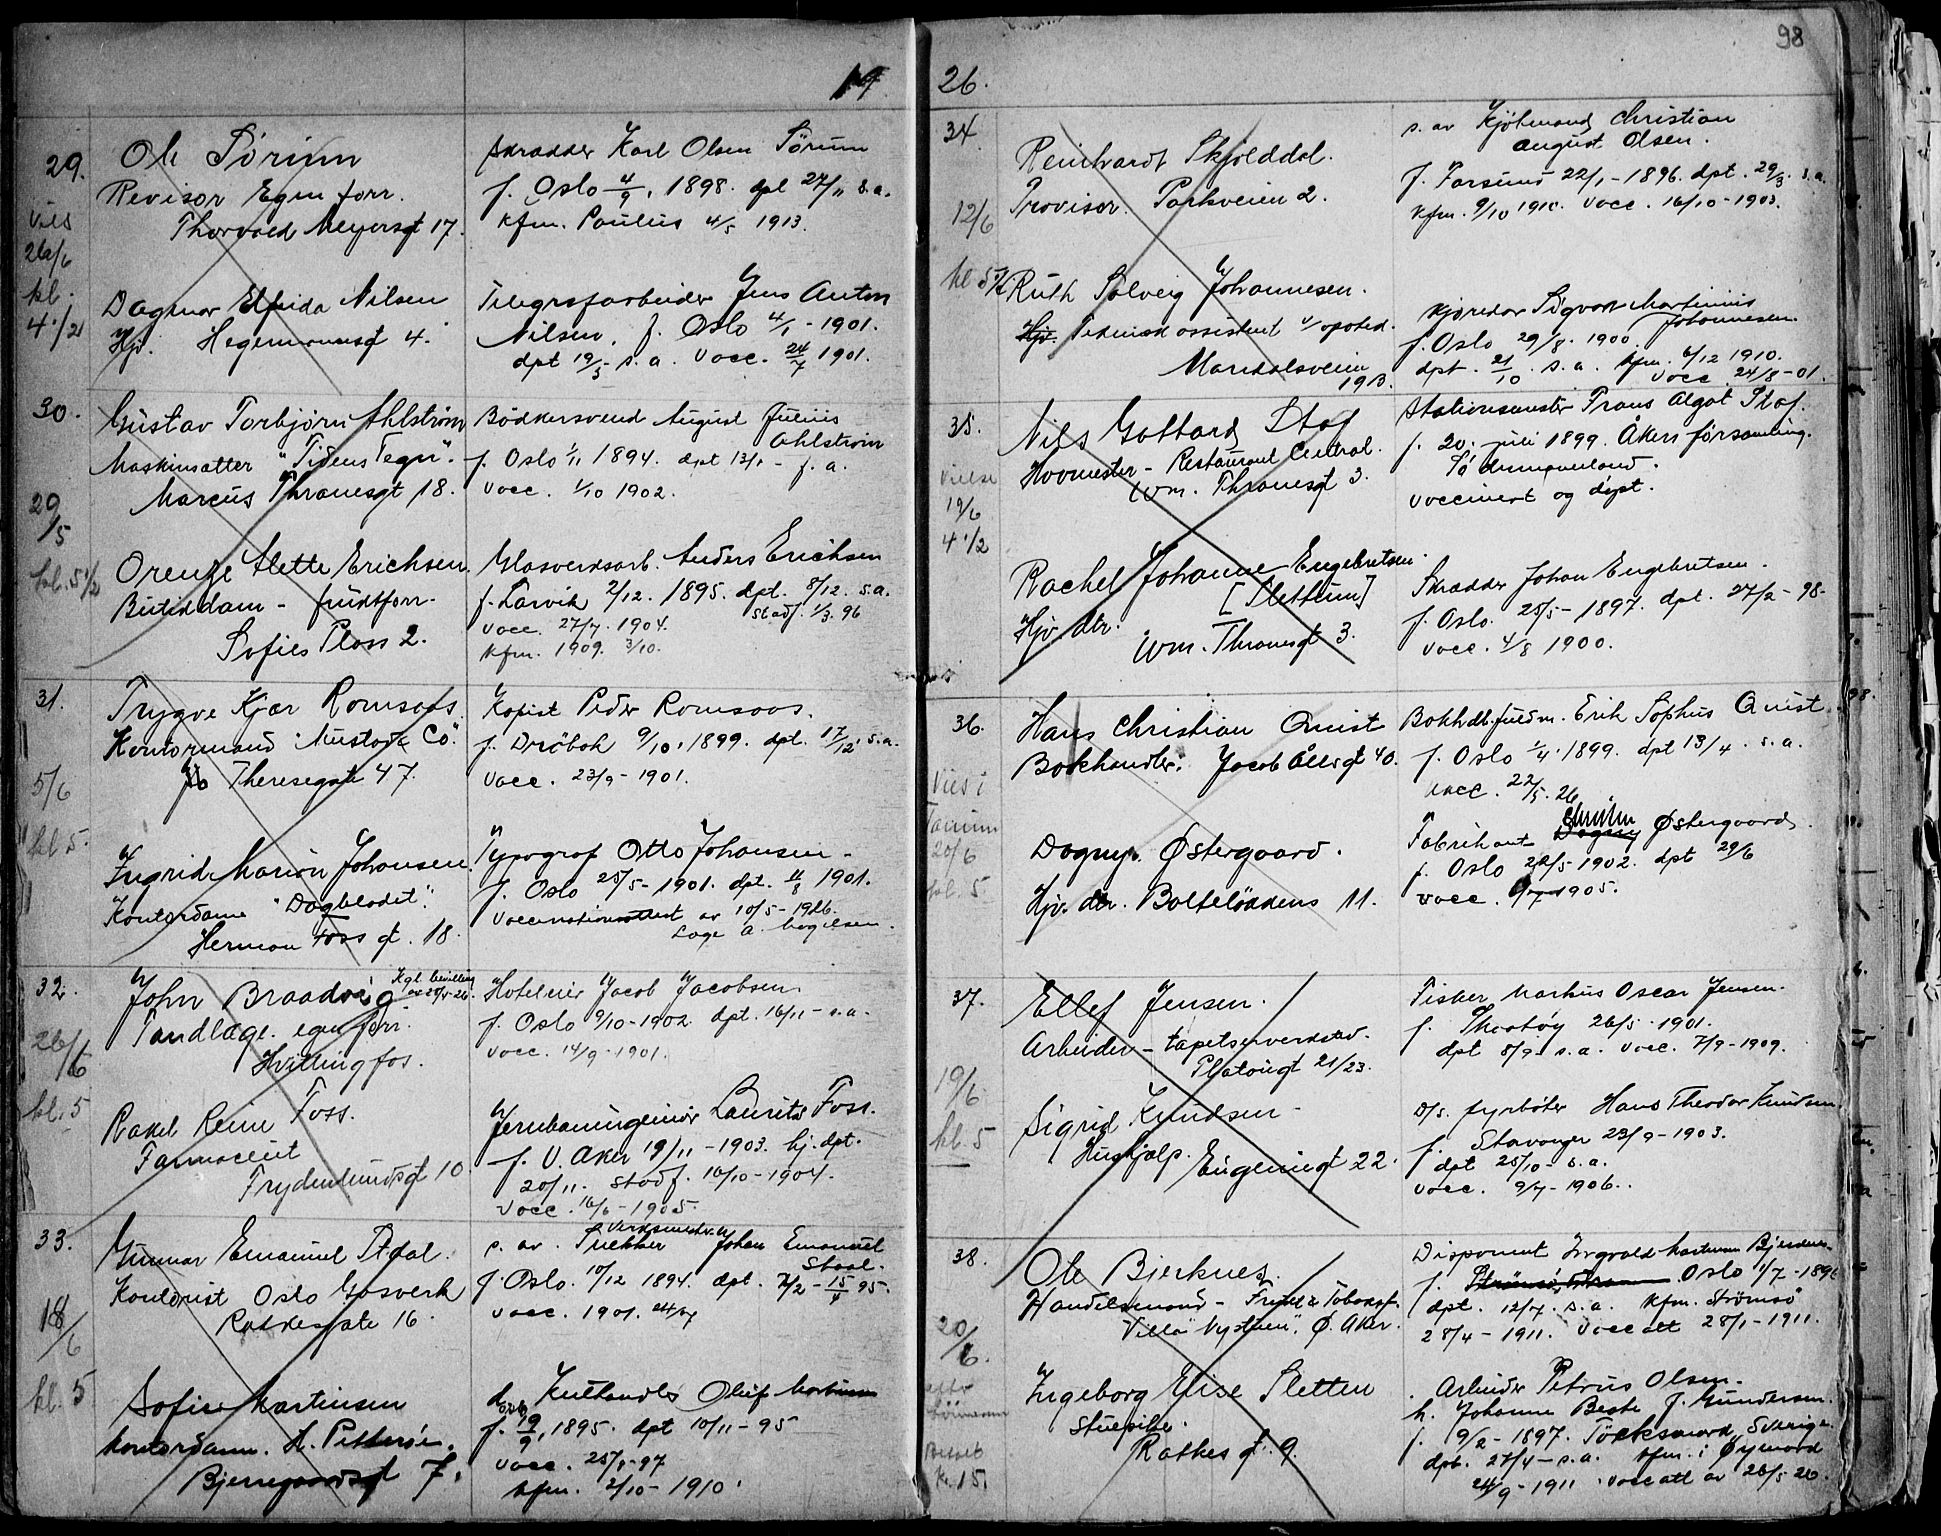 19
29.
Ole Sörum
Revisor Egen forr.
Thorvald Meyersgt 17.
Skrædder Karl Olsen Sörum
f. Oslo 4/9. 1898. dpt 27/11 s.a.
Kfm. Paulus 4/5 1913.
Vies
26/6
kl.
4 1/2
Dagmar Elfrida Nilsen
Hjv. Hegermannsgt 4.
Telegrafarbeider Jens Anton
Nilsen. f. Oslo 4/1 - 1901.
dpt 19/5 s.a. Vacc. 24/7 1901.
30.
Gustav Torbjørn Ahlström
Maskinsætter "Tidens Tegn".
Marcus Thranesgt 18.
Bödkersvend August Julius
Ahlström
f. Oslo 1/11 1894. dpt 13/1 - f. a.
Vacc. 1/10 1902.
29/5
kl. 5 1/2
Mette Erichsen
Butikdame - fruktforr.
Sofies Plass 2.
Glasverksarb. Anders Erichsen
f. Larvik 2/12. 1895. dpt. 8/12. s.a.
Stadf. 1/3. 96
Vacc. 27/7. 1904.
Kfm. 1909. 3/10.
31.
Trygve Kjær Romsaas.
Kontormand Mustad & Co.
Theresegate 47.
Kopist Peder Romsaas.
f. Dröbak 9/10. 1899. dpt. 17/12. s.a.
Vacc. 23/9 - 1901.
5/6
kl 5.
Ingrid Marion Johansen.
Kontordame "Dagbladet".
Herman Foss gt. 18.
Typograf Otto Johansen -
f. Oslo 25/5 - 1901. dpt. 11/8 1901.
Vaccinationsattest av 10/5 - 1926.
Læge A. Magelsen.
32.
John Braadvig
Kgl. bevilling
Tandlæge. egen forr.
Hvittingfos.
Hoteleier Jacob Jacobsen
f. Oslo 9/10 - 1902 dpt. 16/11 - s.a.
Vacc. 14/9 - 1901.
26/6
kl. 5
Rakel Reim Foss.
Farmaceut
Frydenlundsgt 10
Jernbaningeniør Laurits Foss.
f. V. Aker 19/11 - 1903. hj. dpt.
20/11. Stadf. 10/10 - 1904.
Vacc. 16/6 - 1905.
33.
Gunnar Emanuel Staal.
Kontorist Oslo Gasverk
Ratkesgate 16.
s. av Snekker Johan Emanuel
Staal.
f. Oslo. 10/12 1894. dpt. 7/2 - 15/4 95.
Vacc. 1901. 24/7
18/6
kl. 5
Sofie Martinsen
Kontordame. H. Petterøe.
Bjerregaardsgt 7.
Kulhandler Oluf Martinsen
f. 19/9. 1895. dpt 10/11 - 95
Vacc. 25/8 - 97
kfm. 2/10 - 1910.
98
26.
34.
Reinhardt Skjolddal.
Provisor. Parkveien 2.
s. av Kjöbmand Christian
August Olsen.
f. Farsund 22/1 - 1896. dpt. 29/3. s.a.
Kfm. 9/10 1910. Vacc. 16/10 - 1903.
12/6
kl 5 1/2
Ruth Solveig Johannesen.
Hjv. Teknisk assistent v/ apotek.
Maridalsveien
19 B.
Kjøredar Sigvart Martinius
Johannesen.
f. Oslo 29/8. 1900.
dpt. 21/10. s.a. kfm. 6/12 1910.
Vacc. 24/8 - 01.
35.
Nils Gottard Staf
Hovmester - Restaurant Central.
Wm. Thranesgt 3.
Stationsmester Frans Algot Staf.
f. 20. juli 1899. Åkers församling.
Södermanland.
Vaccinert og döpt.
Vielse
19/6
4 1/2
Rachel Johanne Engebretsen
[Slettum]
Hjv. dtr.
Wm. Thranesgt 3.
Skrædder Johan Engebretsen.
f. Oslo. 25/5 - 1897. dpt. 27/2 - 98.
Vacc. 4/8 1900.
36.
Hans Christian Quist
Bokhandler. Jacob Allsgt 40.
Bokhdl.fuldm. Erik Sophus Quist.
f. Oslo 1/4. 1899. dpt 13/4. s.a.
vacc. 22/5. 26
Vies i
Tanum
20/6
kl. 5
Dagny Østergaard.
Hjv. dtr. Bolteløkkens 11.
Fabrikant Dagny Østergaard.
f. Oslo 22/5 1902. dpt 29/6
Vacc. 6/7 1905.
37.
Ellef Jensen.
Arbeider - tapetserverksted.
Platousgt 21/23.
Fisker Markus Oscar Jensen.
f. Skåtøy 26/5. 1901.
dpt 8/9. s.a. Vacc. 7/9 - 1909.
19/6.
kl. 5
Sigrid Knudsen -
Hushjælp. Eugeniesgt 22.
D/s. fyrböter Hans Theodor Knudsen
f. Stavanger 23/9 - 1903.
dpt 25/10 - s.a.
Vacc. 9/7 - 1906.
38.
Ole Bjerknes.
Handelsmand - Frukt & Tobaksf.
Villa "Nystuen". Ø. Aker.
Disponent Ingvald Martinus Bjerknes.
f. Oslo 1/7 - 1896
dpt. 12/7. s.a. Kfm. Strømsö
28/4 - 1911. Vacc att 28/1 - 1911.
20/6.
Betalt
Kr. 15.
Ingeborg Elise Sletten
Stuepike.
Ratkes gt. 9.
Arbeider Petrus Olsen.
h. Johanne Beate f. Gundersen.
f. 9/2 - 1897. Töcksmark, Sverige.
dpt. 27/4 - s.a. kfm. i Øymark
24/9 - 1911. vacc att av 26/5 26.